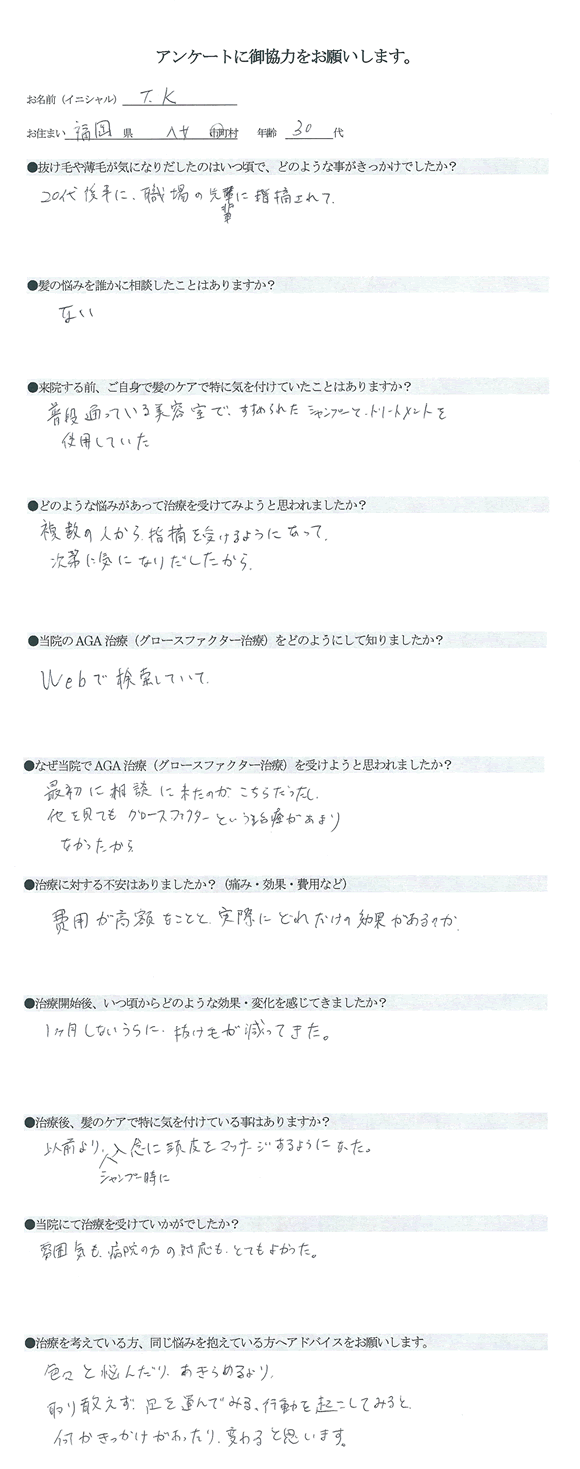 アンケートに御協力をお願いします。
お名前（イニシャル） T.K
お住まい 福岡 県 市町村 年齢 30 代
●抜け毛や薄毛が気になりだしたのはいつ頃で、どのような事がきっかけでしたか？
20代後半に、職場の先輩に指摘されて。
●髪の悩みを誰かに相談したことはありますか？
ない
●来院する前、ご自身で髪のケアで特に気を付けていたことはありますか？
普段通っている美容室で、すすめられたシャンプーと、トリートメントを
使用していた
●どのような悩みがあって治療を受けてみようと思われましたか？
複数の人から、指摘を受けるようになって、
次第に気になりだしたから。
●当院のAGA治療（グロースファクター治療）をどのようにして知りましたか？
Webで検索していて。
●なぜ当院でAGA治療（グロースファクター治療）を受けようと思われましたか？
最初に相談に来たのが、こちらだったし、
他を見てもグロースファクターという治療があまり
なかったから
●治療に対する不安はありましたか？（痛み・効果・費用など）
費用が高額なことと、実際にどれだけの効果があるのか。
●治療開始後、いつ頃からどのような効果・変化を感じてきましたか？
1ヶ月しないうちに、抜け毛が減ってきた。
●治療後、髪のケアで特に気を付けている事はありますか？
以前より、入念に頭皮をマッサージするようになった。
シャンプー時に
●当院にて治療を受けていかがでしたか？
雰囲気も、病院の方の対応も、とてもよかった。
●治療を考えている方、同じ悩みを抱えている方へアドバイスをお願いします。
色々と悩んだり、あきらめるより、
取り敢えず、足を運んでみる、行動を起こしてみると、
何かきっかけがあったり、変わると思います。